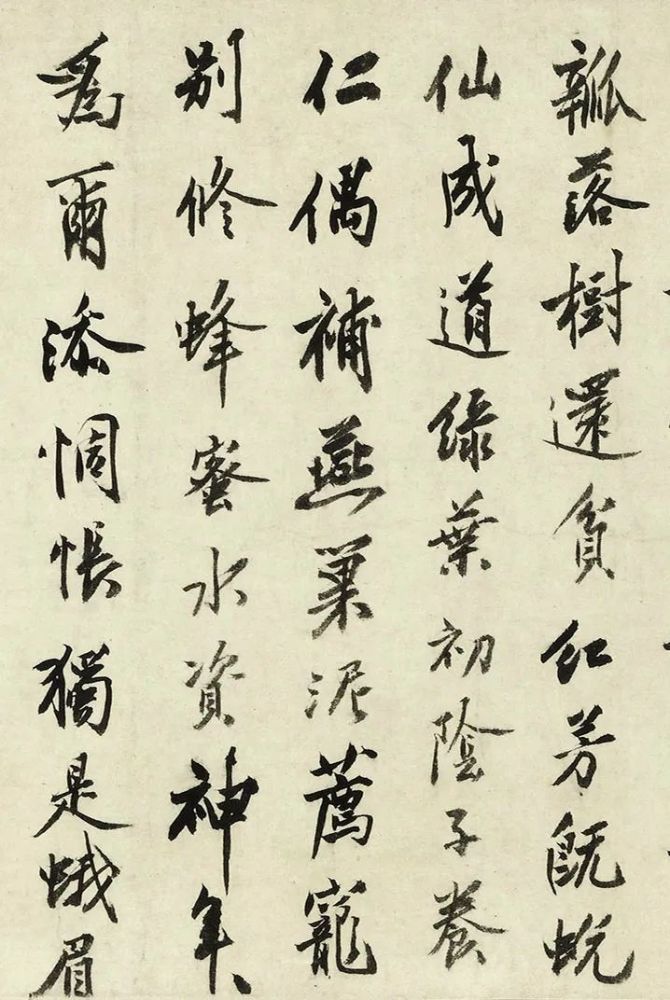 瓣落樹還貧紅芳既蛻
仙成道綠葉初陰子養
仁偶補燕巢泥薦寵
别修蜂蜜水資神年々
為爾添惆悵獨是蛾眉